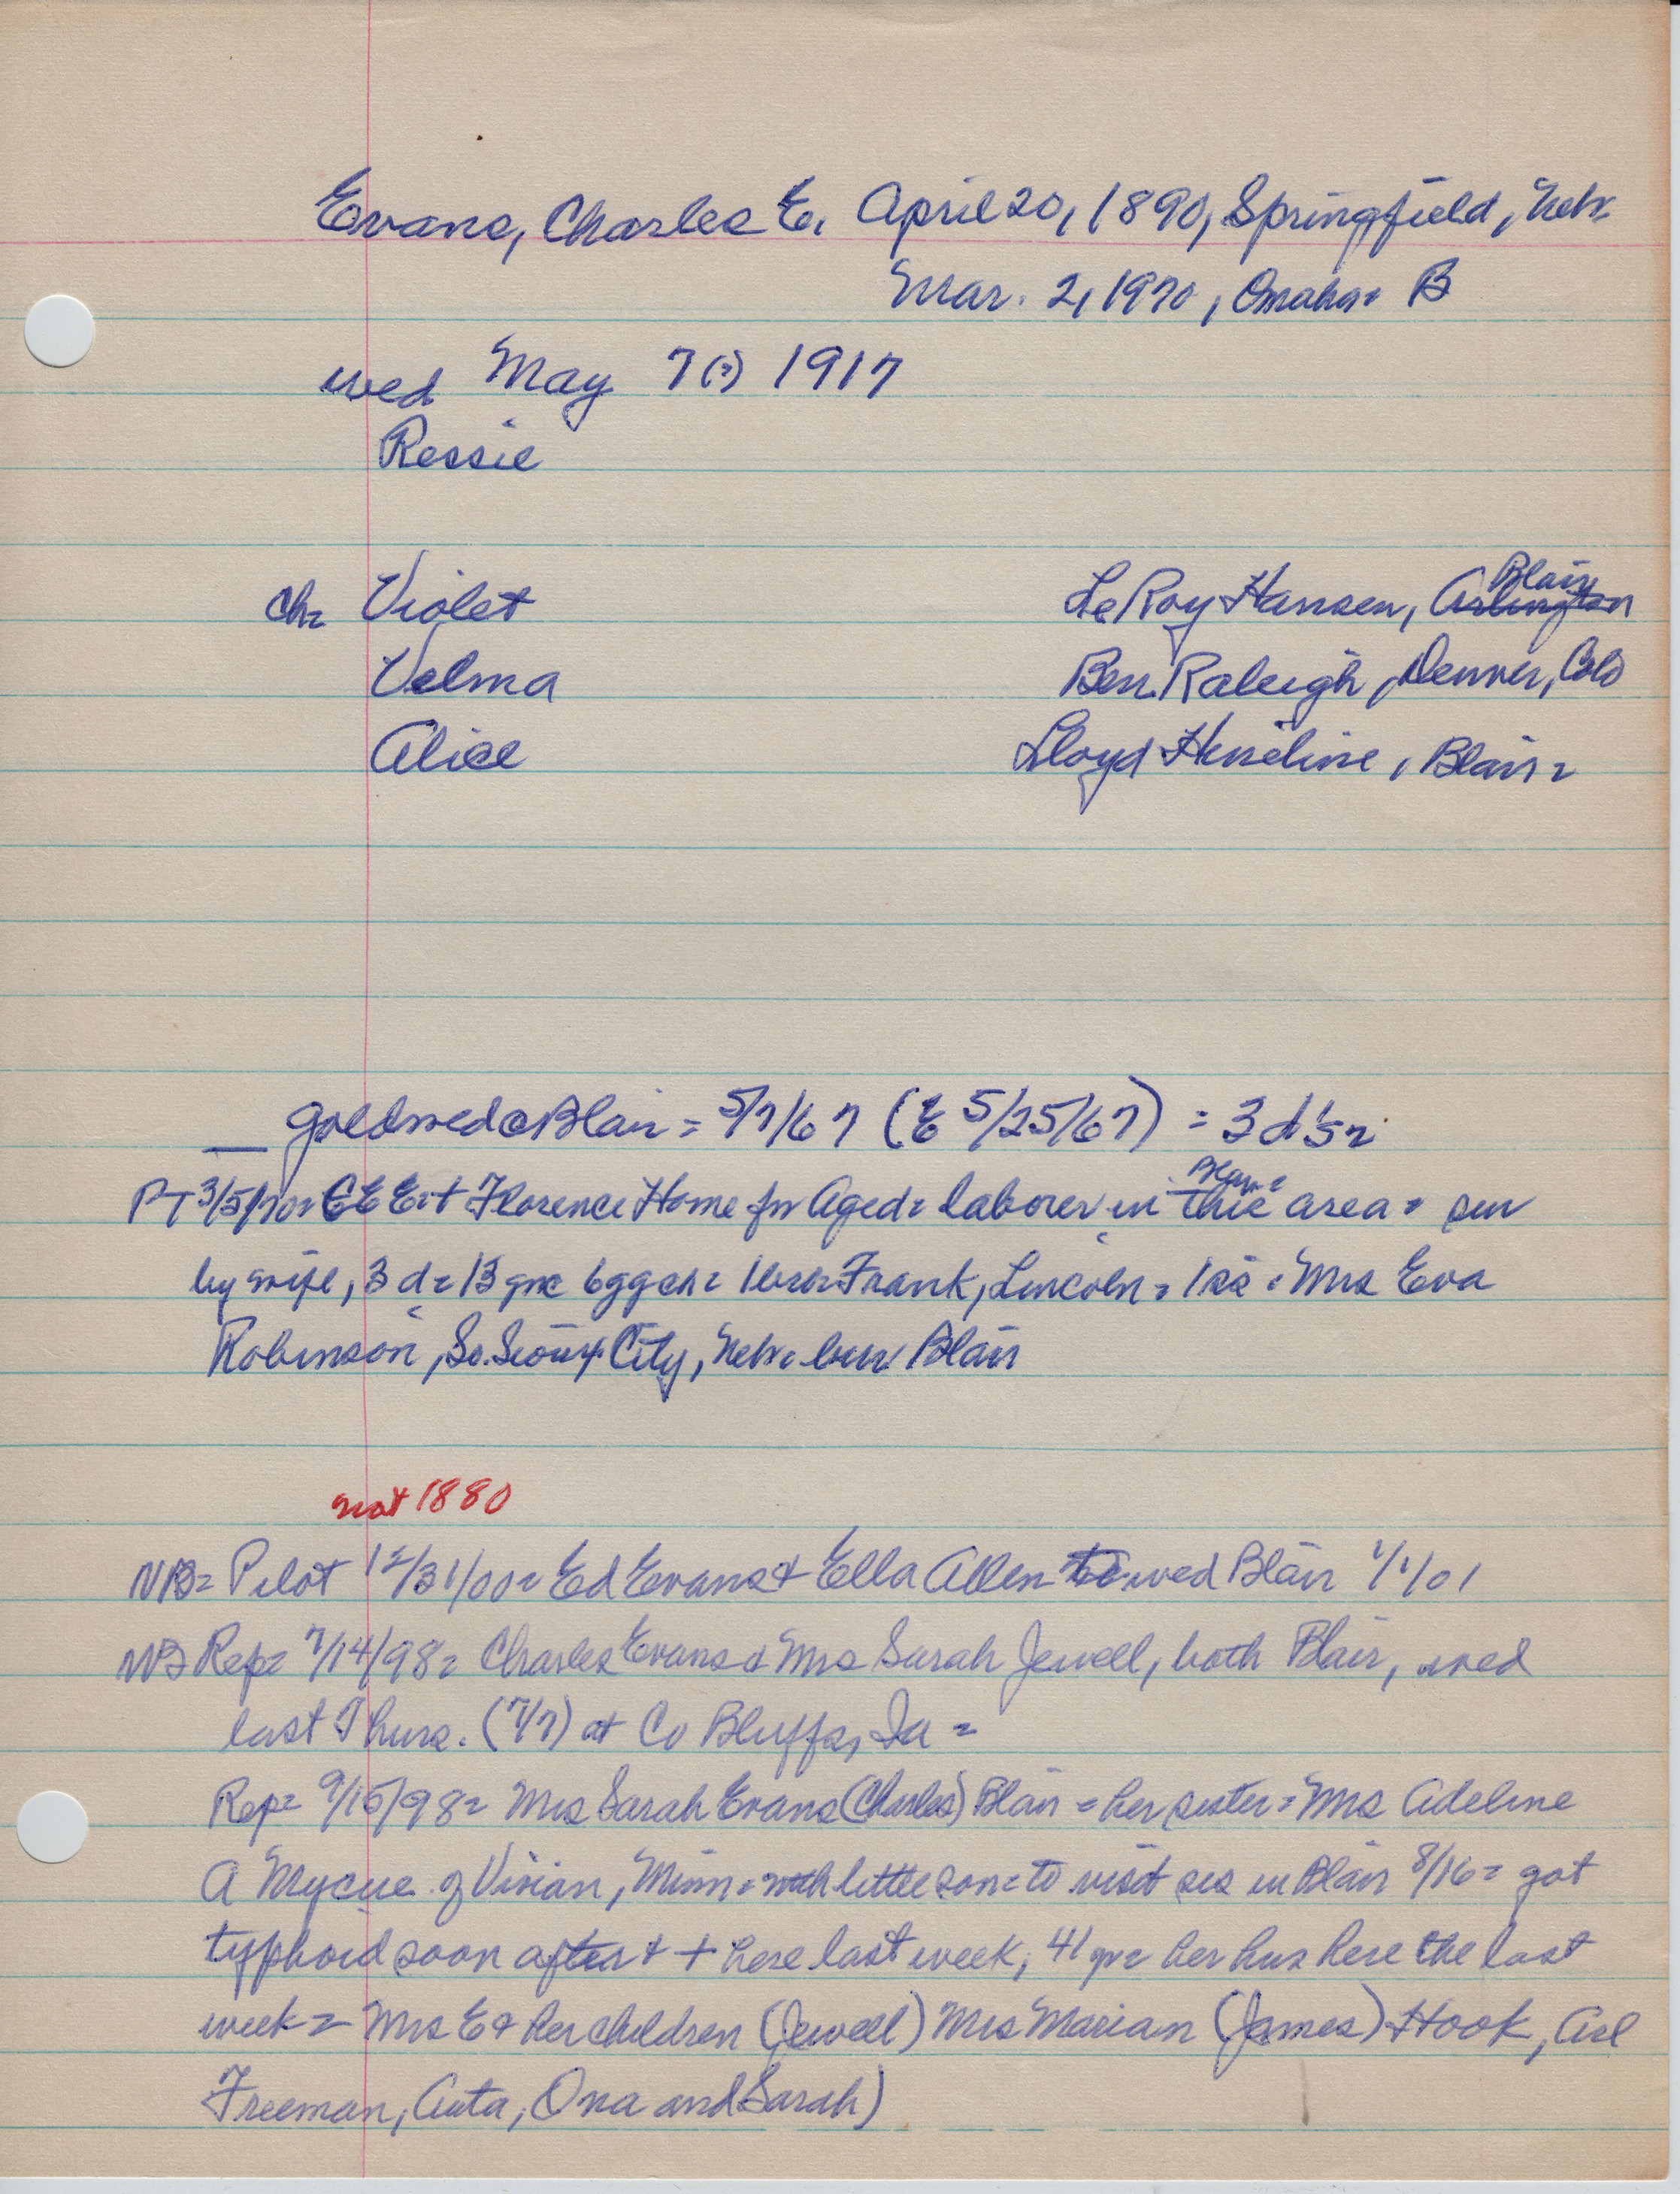 Evans, Charles E. April 20, 1890, Springfield, Nebr.
Mar. 2, 1970, Omaha = B
wed May 7(?) 1917
Ressie
Ch = Violet LeRoy Hansen, Arlington Blair
Velma Ben Raleigh, Denver, Colo
Alice Lloyd Heineline, Blair =
gold wed @ Blair = 5/7/67 (E 5/25/67) = 3 d's =
Blair =
PT 3/5/70 = CE E + Florence Home for Aged = laborer in this area = sur
by wife, 3 d = 13 gc 6 ggch = 1 bro = Frank, Lincoln = 1 sis = Mrs Eva
Robinson, So. Sioux City, Nebr = bur Blair
not 1880
NB = Pilot 12/31/00 = Ed Evans & Ella Allen to wed Blair 1/1/01
NB Rep = 7/14/98 = Charles Evans & Mrs Sarah Jewell, both Blair, wed
last Thurs. (7/7) at Co Bluffs, Ia =
Rep = 9/15/98 = Mrs Sarah Evans (Charles) Blair = her sister = Mrs Adeline
A Mycue of Vivian, Minn = with little son = to visit sis in Blair 8/16 = got
typhoid soon after & + here last week, 41 yr = her hus here the last
week = Mrs E & her children (Jewell) Mrs Marian (James) Hook, Arl
Freeman, Auta, Ona and Sarah)